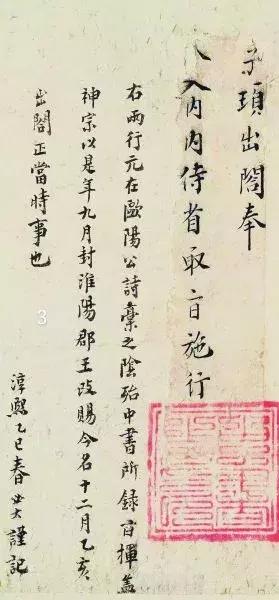 頊出閤奉
入内内侍省取旨施行
右兩行元在歐陽公詩藁之陰殆中書所録旨揮蓋
神宗以是年九月封淮陽郡王改賜今名十二月乙亥
出閤正當時事也
3
淳熙乙巳春必大謹記